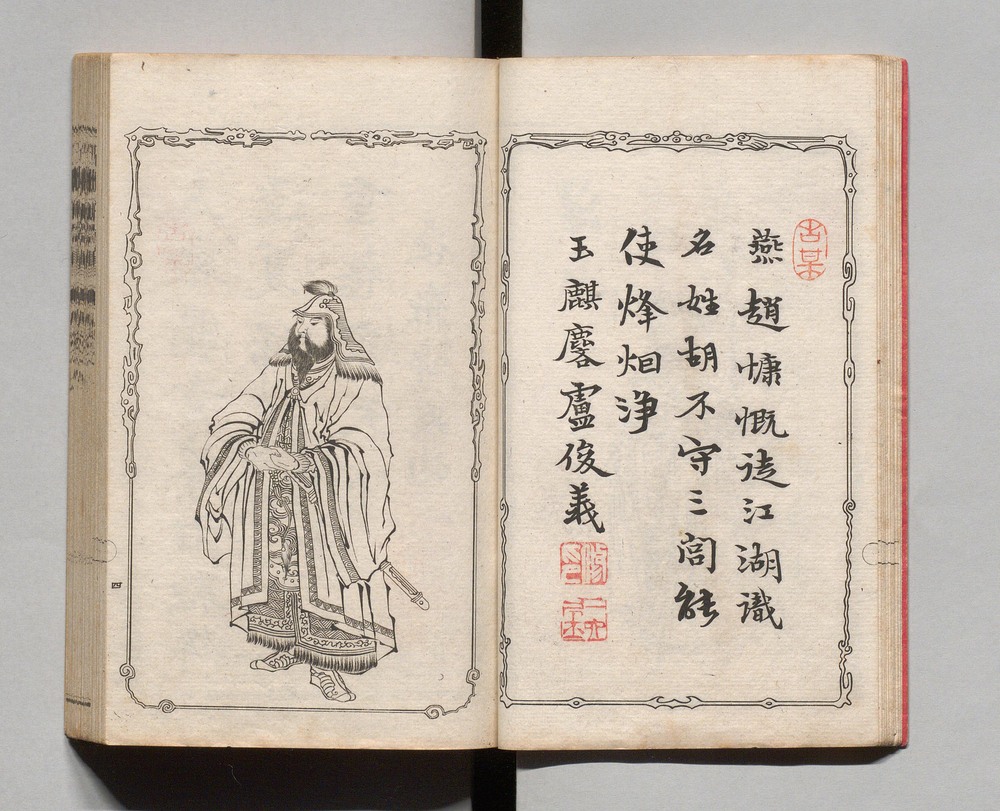 燕趙慷慨徒江湖識
名姓胡不守三閭能
使烽烟淨
玉麒麐盧俊義
四